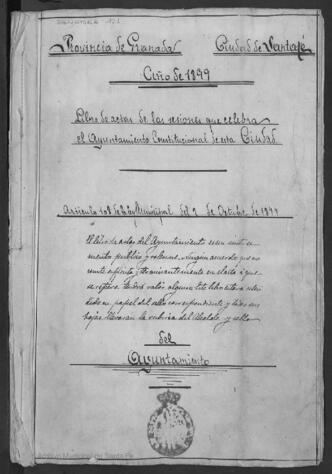 Provincia de Granada Ciudad de Santafé
Año de 1899
Libro de actas de las sesiones que celebra
el Ayuntamiento Constitucional de esta Ciudad
Articulo 108 de la Ley Municipal del 2 de Octubre de 1877
El libro de actas del Ayuntamiento es un instru
mento publico y solemne, ningun acuerdo que no
conste explicita y terminantemente en el acta á que
se refiera tendrá valor alguno. Este libro estara esten
dido en papel del sello correspondiente y todas sus
hojas llevarán la rubrica del Alcalde y sello
del
Ayuntamiento
Archivo Municipal de Santa Fe